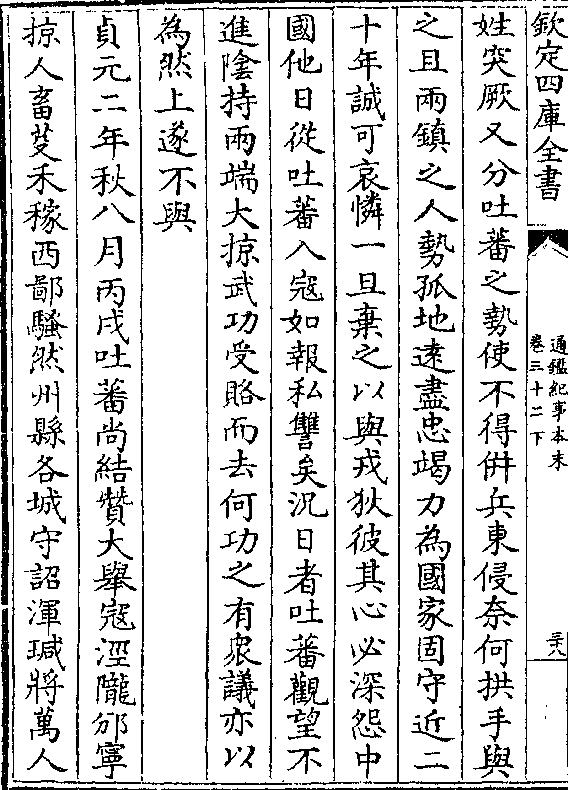 欽定四庫全書
通鑑紀事本末
卷三十二下
三十八
姓突厥又分吐蕃之勢使不得併兵東侵奈何拱手與
之且兩鎮之人勢孤地遠盡忠竭力為國家固守近二
十年誠可哀憐一旦棄之以與戎狄彼其心必深怨中
國他日從吐蕃入寇如報私讐矣況日者吐蕃觀望不
進陰持兩端大掠武功受賂而去何功之有衆議亦以
為然上遂不與
貞元二年秋八月丙戌吐蕃尚結贊大舉寇涇隴邠寧
掠人畜芟禾稼西鄙騷然州縣各城守詔渾瑊將萬人